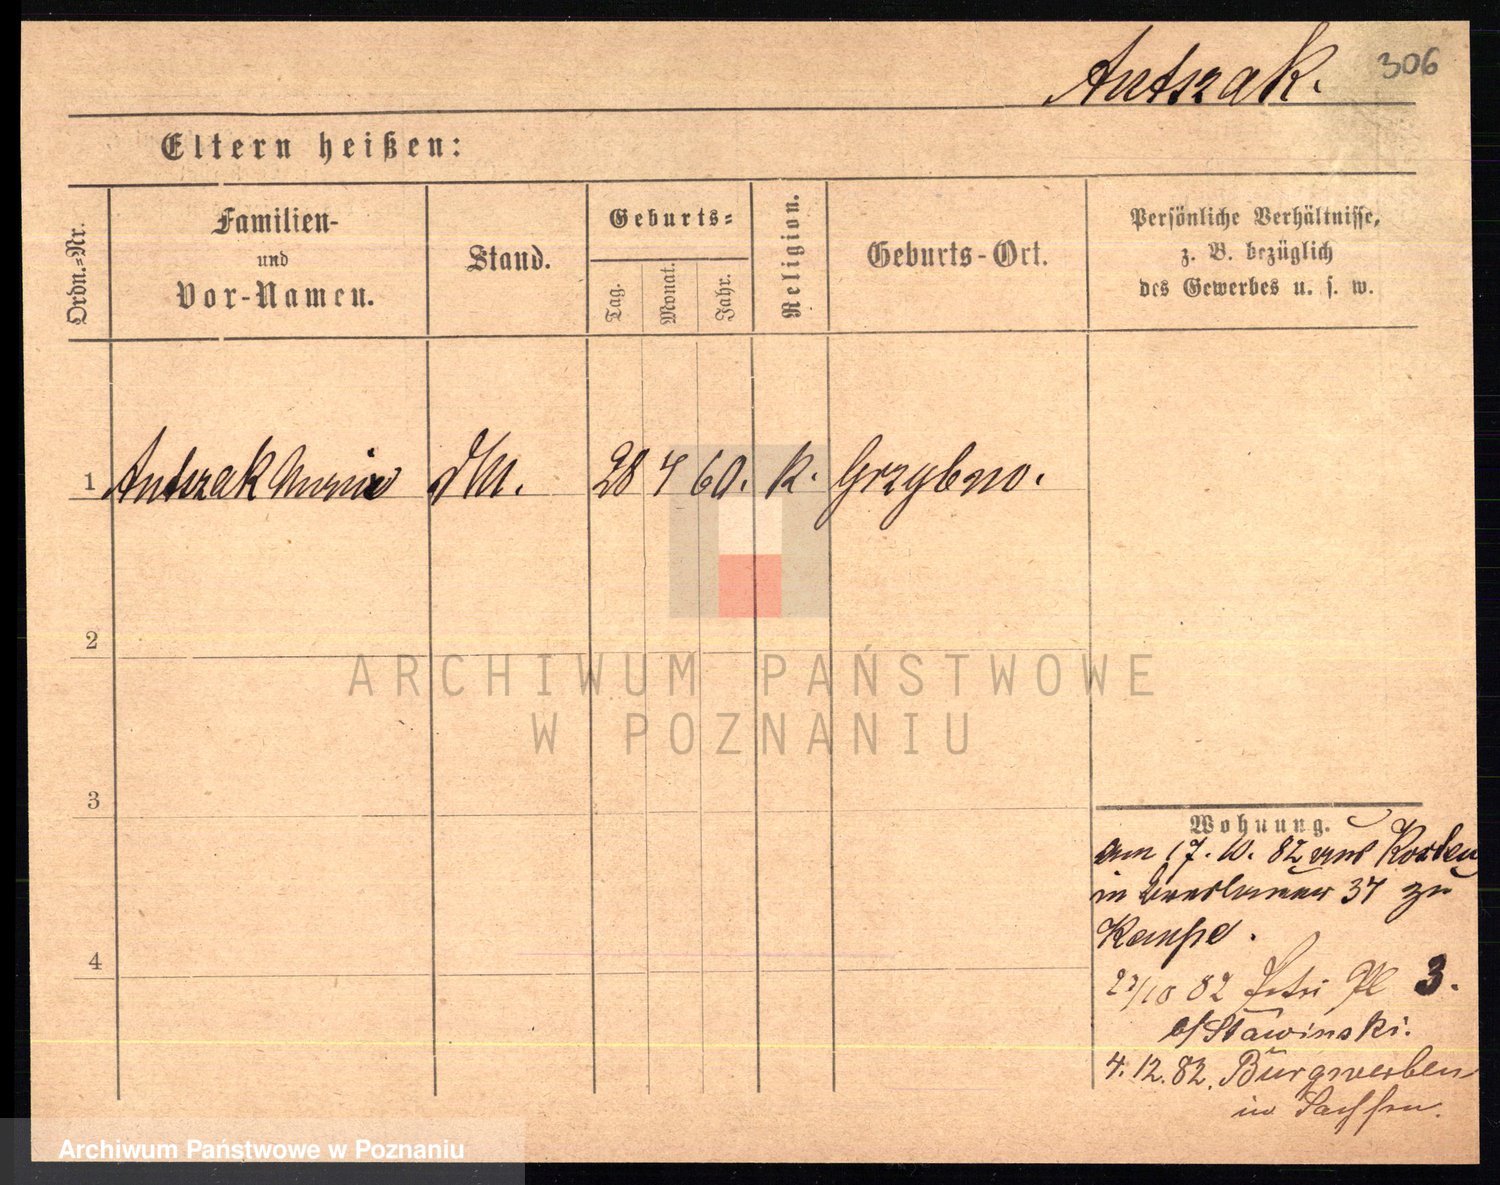 Antszak.
306
Eltern heißen:
Ordn.-Nr.
Familien-
und
Vor-Namen.
Stand.
Geburts-
Tag.
Monat.
Jahr.
Religion.
Geburts-Ort.
Persönliche Verhältnisse,
z. B. bezüglich
des Gewerbes u. s. w.
1 Antszak DM. 28 4 60. k. Grzybno.
2
3
4
ARCHIWUM PAŃSTWOWE
W POZNANIU
Wohnung.
am 17. 10. 82 aus Kosten
in 34 zu
Kempe.
10 82 Petri Pl 3.
b/ Stawinski.
4. 12. 82. Burgwerben
in Sachsen.
Archiwum Państwowe w Poznaniu